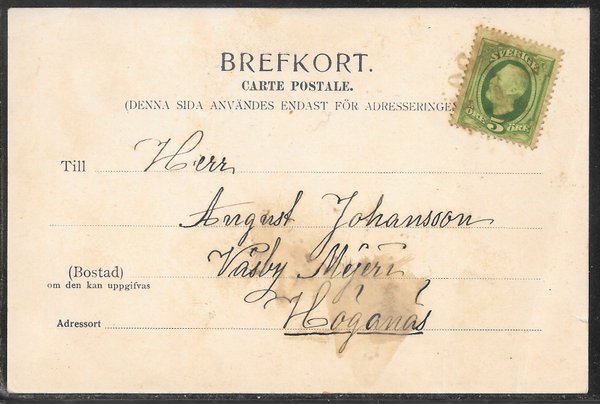 BREFKORT.
CARTE POSTALE.
(DENNA SIDA ANVÄNDES ENDAST FÖR ADRESSERINGEN
SVERIGE
ÖRE 5 ÖRE
Till Herr
August Johansson
Väsby Mejeri
(Bostad)
om den kan uppgifvas
Adressort Höganäs